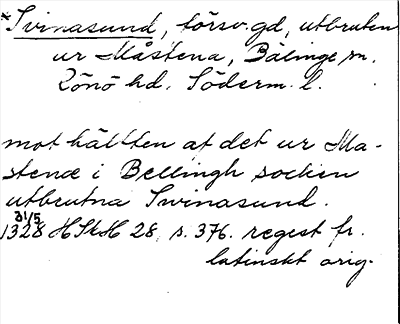 *Svinasund, försv. gd, utbruten
ur Måstena, Bälinge sn.
Rönö hd. Söderm. l.
mot hälften af det ur Ma-
stenæ i Bellingh socken
utbrutna Swinasund.
31/5
1328 HSkH 28, s. 376. regest fr.
latinskt orig.